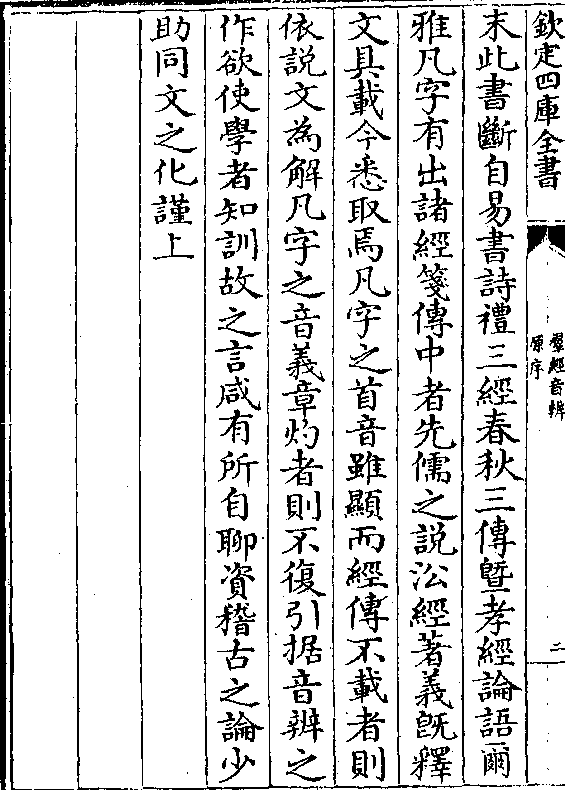 欽定四庫全書
羣經音辨
原序
二
末此書斷自易書詩禮三經春秋三傳曁孝經論語爾
雅凡字有出諸經箋傳中者先儒之說㳂經著義旣釋
文具載今悉取焉凡字之首音雖顯而經傳不載者則
依說文為解凡字之音義章灼者則不復引据音辨之
作欲使學者知訓故之言咸有所自聊資稽古之論少
助同文之化謹上